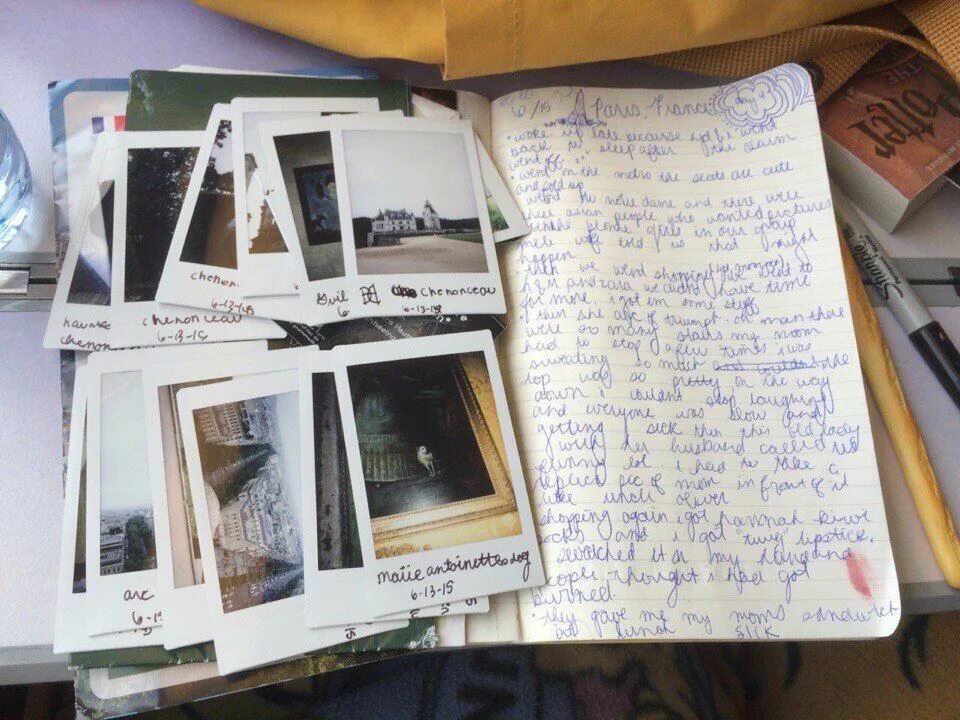 chenonceau
6-13-15
haunted
chenon
chenon
6-13-15
chenonceau
6-13-15
arc
6-1
marie antoinette's dog
6-13-15
6/15 Paris, France day 4
• woke up late because syd & i went
back to sleep after the alarm
went off
• went on the metro the seats are cute
and fold up
• notre dame and there were
these asian people who wanted pictures
blonde girls in our group
told us that might
happen
• then we went shopping we went to
h&m and zara we didn't have time
for more, i got em some stuff
• then the arc of triumph oh man there
were so many stairs my mom
had to stop a few times i was
sweating so much the
top was so pretty on the way
down i couldn't stop laughing
and everyone was slow and
getting sick then this old lady
with her husband called us
lol i had to take a
replica pic of mom in front of it
like uncle oliver
shopping again i got hannah kiwi
socks and i got "ruby" lipstick,
i swatched it on my hand and
people thought i had got
burned
• they gave me my moms sandwich
at sick
Potter
Sharpie